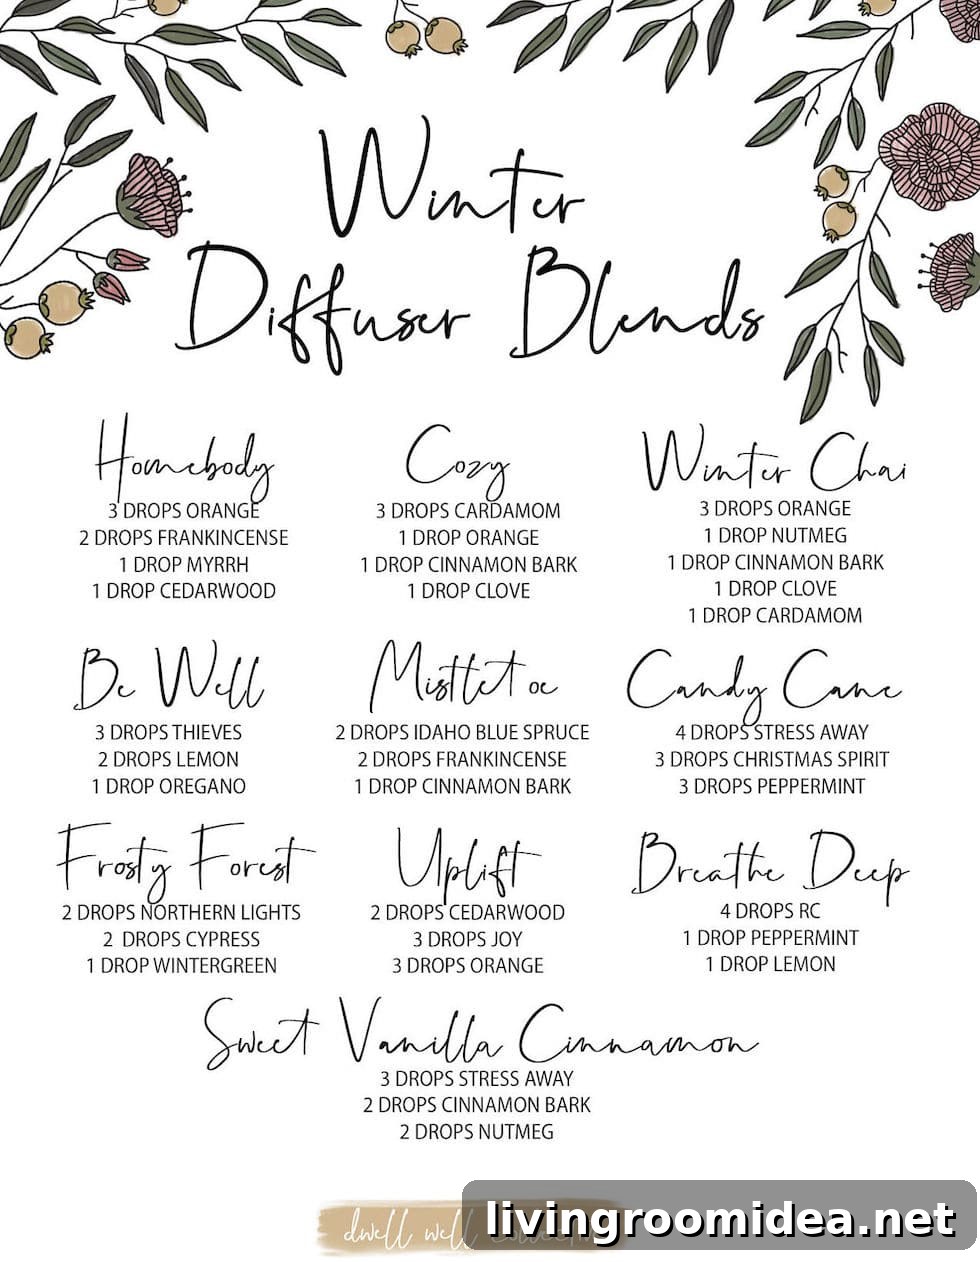 Winter
Diffuser Blends
Homebody
3 DROPS ORANGE
2 DROPS FRANKINCENSE
1 DROP MYRRH
1 DROP CEDARWOOD
Cozy
3 DROPS CARDAMOM
1 DROP ORANGE
1 DROP CINNAMON BARK
1 DROP CLOVE
Winter Chai
3 DROPS ORANGE
1 DROP NUTMEG
1 DROP CINNAMON BARK
1 DROP CLOVE
1 DROP CARDAMOM
Be Well
3 DROPS THIEVES
2 DROPS LEMON
1 DROP OREGANO
Mistletoe
2 DROPS IDAHO BLUE SPRUCE
2 DROPS FRANKINCENSE
1 DROP CINNAMON BARK
Candy Cane
4 DROPS STRESS AWAY
3 DROPS CHRISTMAS SPIRIT
3 DROPS PEPPERMINT
Frosty Forest
2 DROPS NORTHERN LIGHTS
2 DROPS CYPRESS
1 DROP WINTERGREEN
Uplift
2 DROPS CEDARWOOD
3 DROPS JOY
3 DROPS ORANGE
Breathe Deep
4 DROPS RC
1 DROP PEPPERMINT
1 DROP LEMON
Sweet Vanilla Cinnamon
3 DROPS STRESS AWAY
2 DROPS CINNAMON BARK
2 DROPS NUTMEG
dwell well
livingroomidea.net